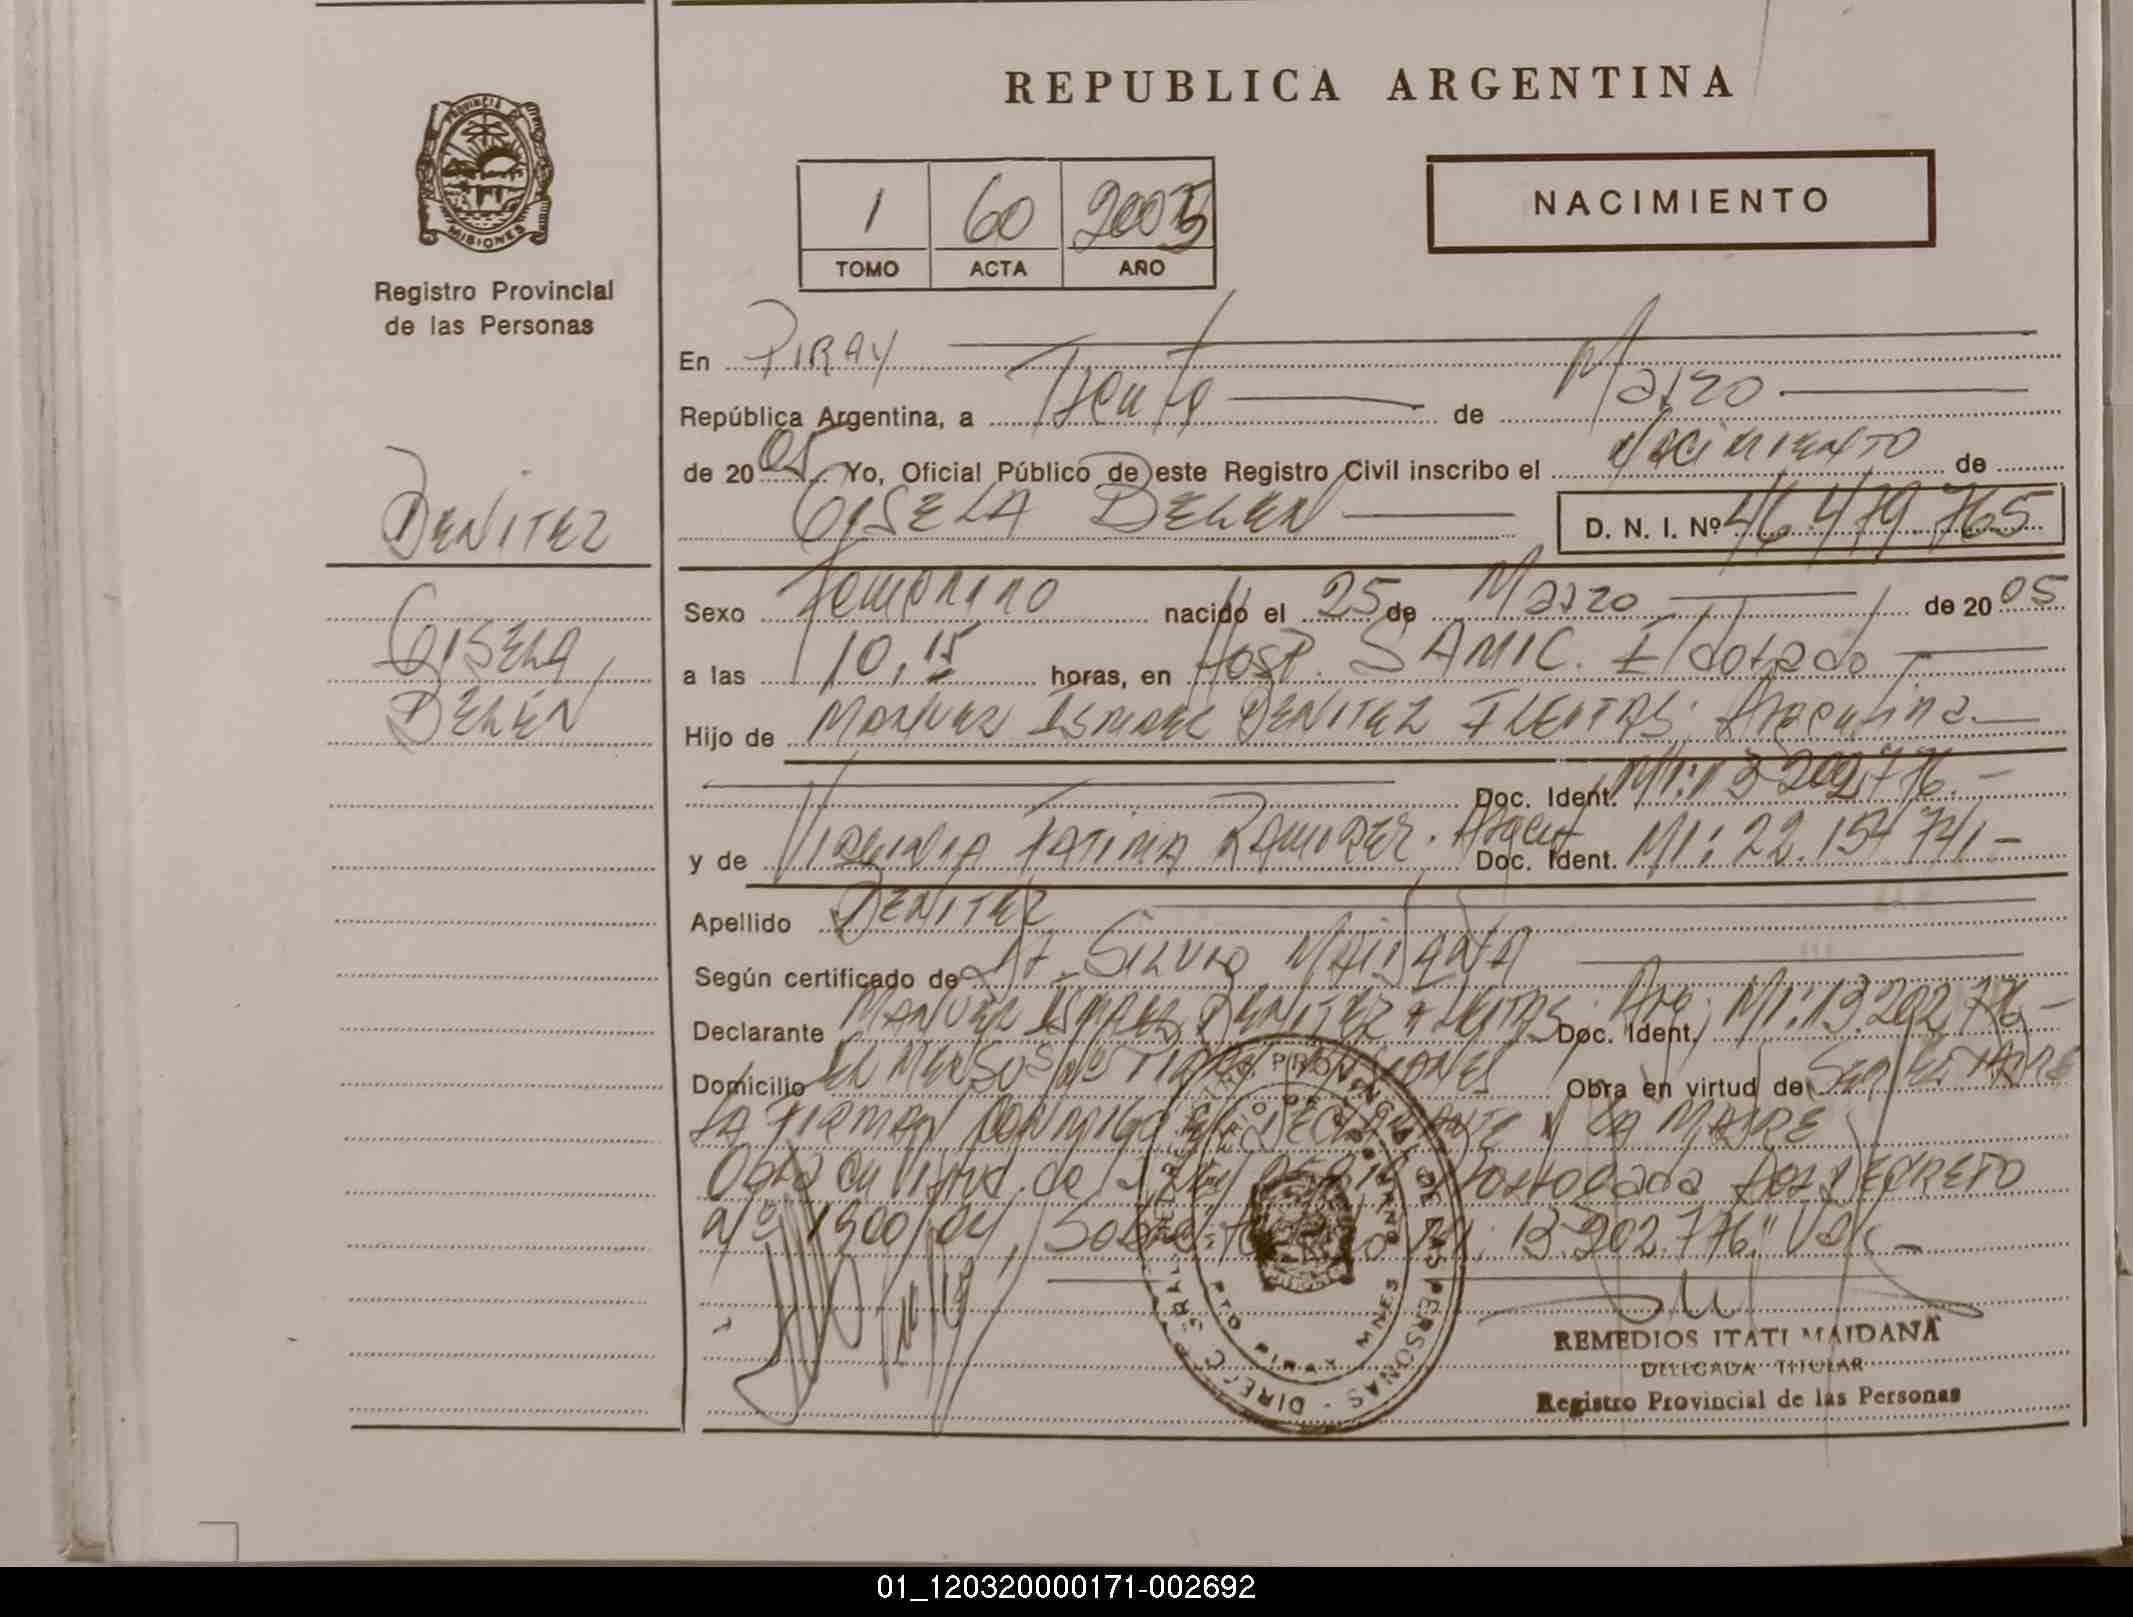 REPUBLICA ARGENTINA
PROVINCIA DE
MISIONES
Registro Provincial
de las Personas
NACIMIENTO
1 60 2005
TOMO ACTA AÑO
En PIRAY
República Argentina, a Treinta de Marzo
de 2005. Yo, Oficial Público de este Registro Civil inscribo el Nacimiento de
GISELA BELEN D. N. I. Nº 46.479.765
BENITEZ
GISELA
BELÉN
Sexo Femenino nacido el 25 de Marzo de 2005
a las 10,15 horas, en Hosp. SAMIC. Eldorado
Hijo de MANUEL ISMAEL BENITEZ FLEITAS; Argentina
Doc. Ident. MI: 13.202.776.-
y de VIRGINIA FATIMA RAMIREZ. Argent. Doc. Ident. MI: 22.154.741.-
Apellido BENITEZ
Según certificado de SILVIO MAIDANA
Declarante MANUEL ISMAEL BENITEZ FLEITAS. Arg. Doc. Ident. MI: 13.202.776.-
Domicilio Obra en virtud de
LA FIRMAN CONMIGO EL DECLARANTE Y LA MADRE
Obra en virtud de Ley Prorrogada por DECRETO
Nº 1900/04, MI: 13.202.776." Vale -
DE LAS PERSONAS
REMEDIOS ITATI MAIDANA
DELEGADA TITULAR
Registro Provincial de las Personas
01_120320000171-002692